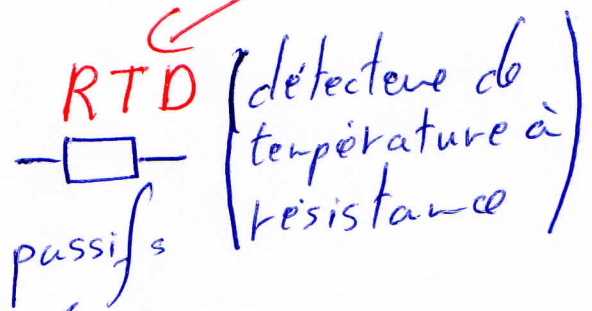 RTD (détecteur de
température à
résistance)
passifs